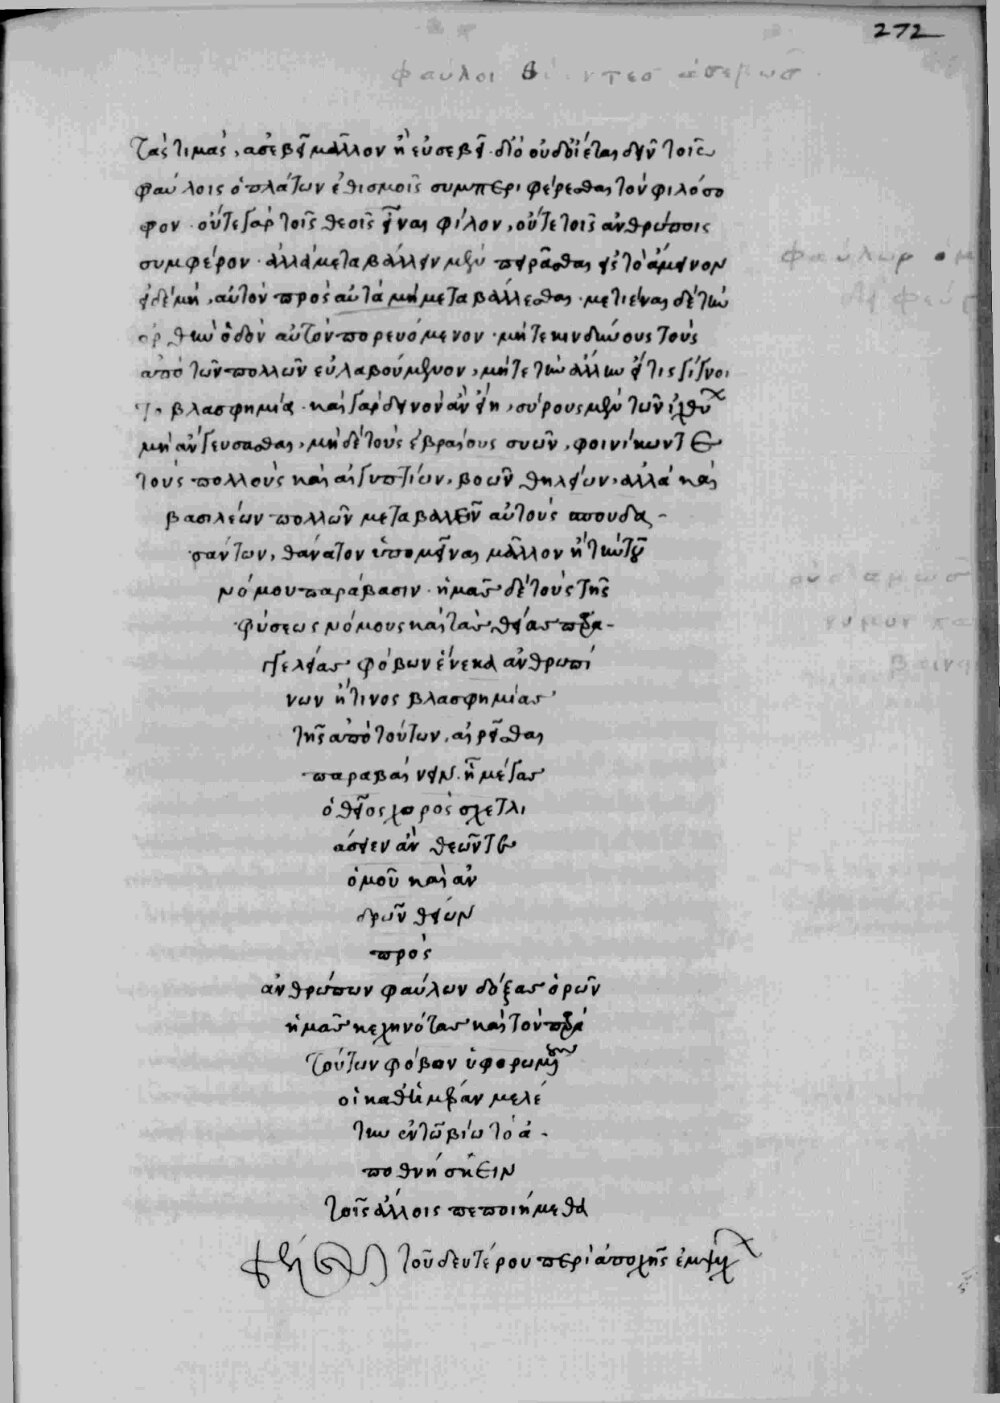 272
φαύλοι θύοντεσ ἀσεβῶσ
τὰς τιμὰς, ἀσεβεῖ μᾶλλον ἢ εὐσεβεῖ. διὸ οὐδ οἴεται δεῖν τοῖς
φαύλοις ὁ πλάτων ἐθισμοῖς συμπεριφέρεσθαι τὸν φιλόσο
φον. οὔτε γὰρ τοῖς θεοῖς εἶναι φίλον, οὔτε τοῖς ἀνθρώποις
συμφέρον. ἀλλὰ μεταβάλλειν μὲν πειρᾶσθαι εἰς τὸ ἄμεινον
εἰ δὲ μὴ, αὐτὸν πρὸς αὐτὰ μὴ μεταβάλλεσθαι. μετιέναι δὲ τὴν
ὀρθὴν ὁδὸν αὐτὸν πορευόμενον. μήτε κινδύνους τοὺς
ἀπὸ τῶν πολλῶν εὐλαβούμενον, μήτε τὴν ἄλλην εἴ τις γίγνοι
το βλασφημία. καὶ γὰρ δεινὸν ἂν εἴη, σύρους μὲν τῶν ἰχθύων
μὴ ἂν γεύσασθαι, μηδὲ τοὺς ἑβραίους συῶν, φοινίκων τε
τοὺς πολλοὺς καὶ αἰγυπτίων, βοῶν θηλειῶν. ἀλλὰ καὶ
βασιλέων πολλῶν μεταβαλεῖν αὐτοὺς σπουδα-
σάντων, θάνατον ὑπομεῖναι μᾶλλον ἢ τὴν τοῦ
νόμου παράβασιν. ἡμᾶς δὲ τοὺς τῆς
φύσεως νόμους καὶ τὰς θείας παρα-
γγελίας φόβων ἕνεκα ἀνθρωπί
νων ἤ τινος βλασφημίας
τῆς ἀπὸ τούτων, αἱρεῖσθαι
παραβαίνειν. ἦ μέγας
ὁ θεῖος χορὸς σχετλι
άσειεν ἂν θεῶν τε
ὁμοῦ καὶ ἀν
δρῶν θείων
πρὸς
ἀνθρώπων φαύλων δόξας ὁρῶν
ἡμᾶς κεχηνότας καὶ τὸν παρὰ
τούτων φόβον ὑφορωμένους
οἱ καθ ἡμέραν μελέ
την ἐν τῶ βίω τὸ ἀ-
ποθνήσκειν
τοῖς ἄλλοις πεποιήμεθα
τοῦ δευτέρου περὶ ἀποχῆς ἐμψύχων